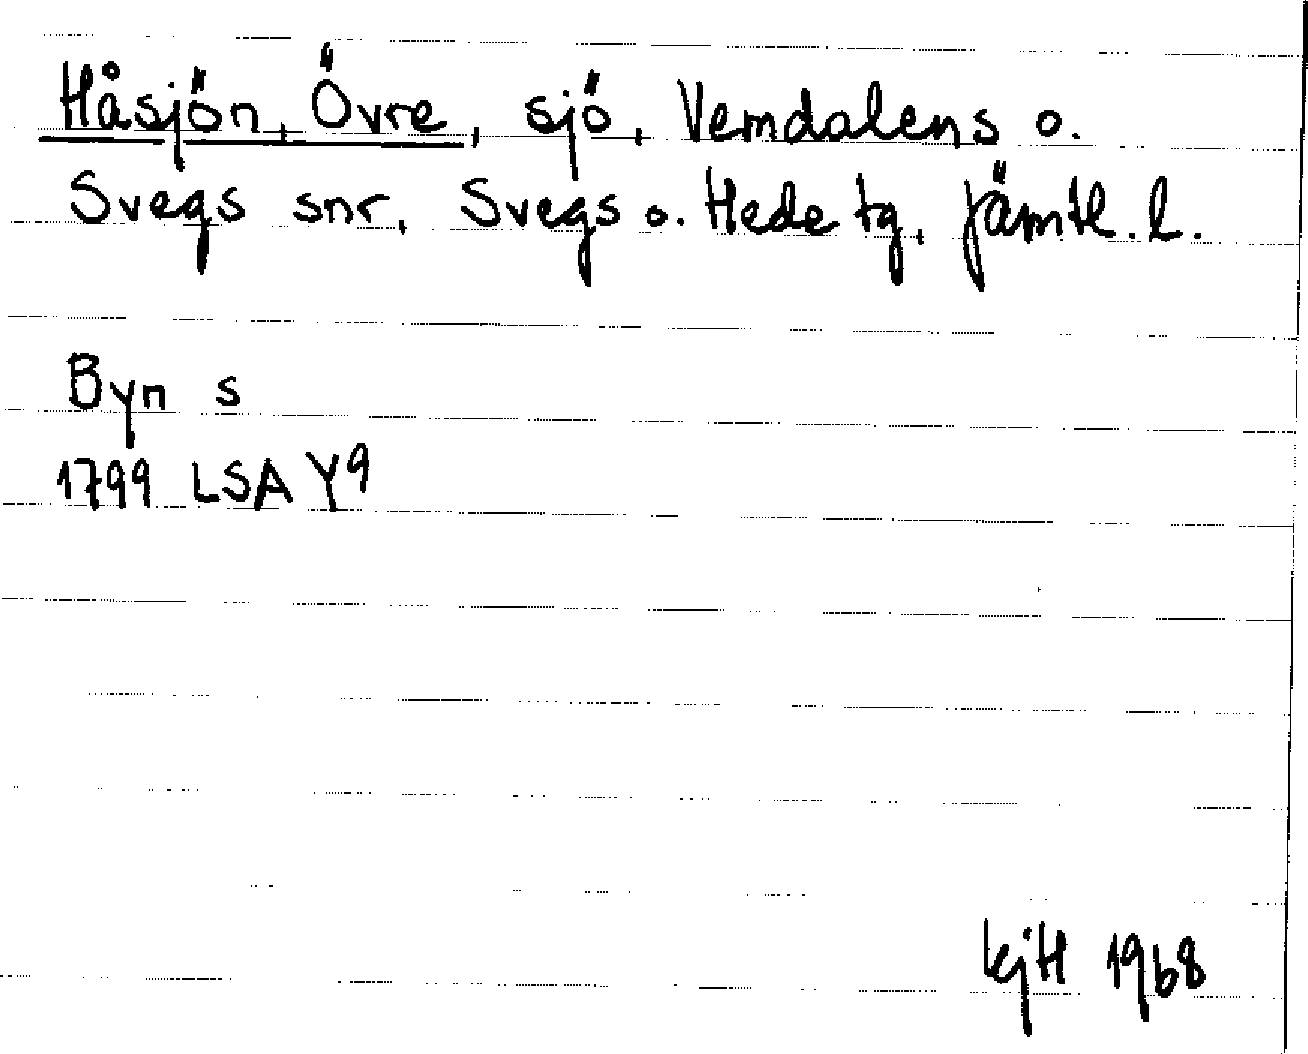 Håsjön, Övre, sjö, Vemdalens o.
Svegs snr, Svegs o. Hede tg, Jämtl. l.
Byn s
1799 LSA Y9
kjH 1968